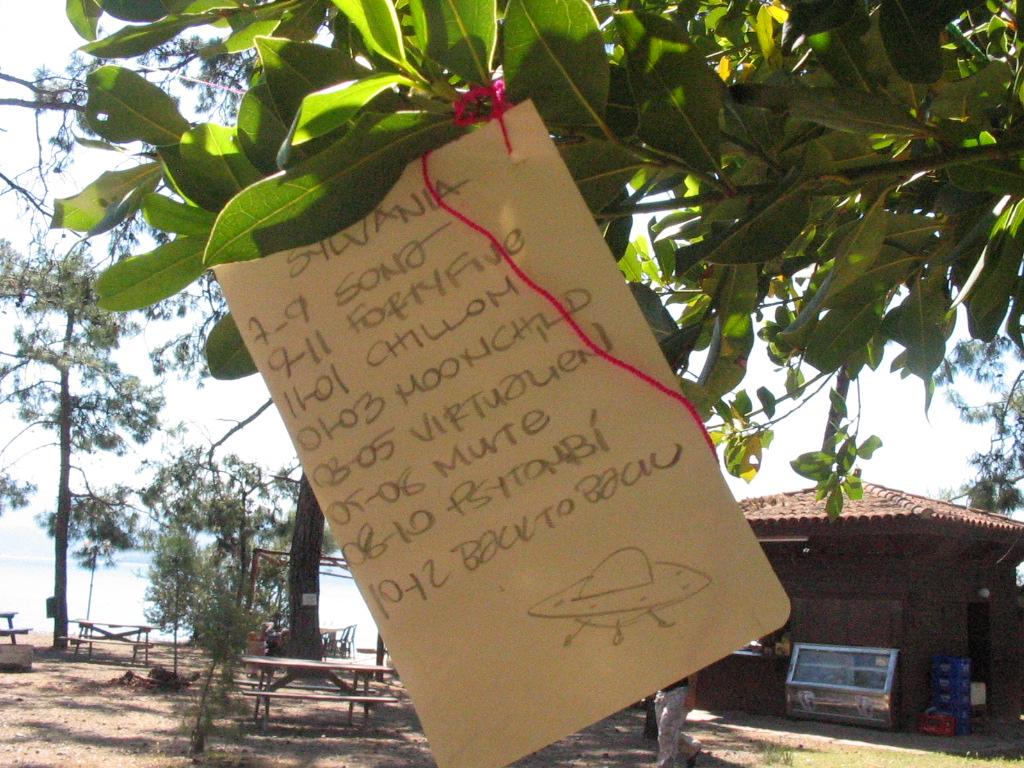 SYLVANIA
7-9 SONG
9-11 FORTYFIVE
11-01 CHILLOM
01-03 MOONCHILD
03-05 VIRTUALIENI
05-06 MUTE
08-10 PSYTAMBÍ
10-12 BACK TO BACK